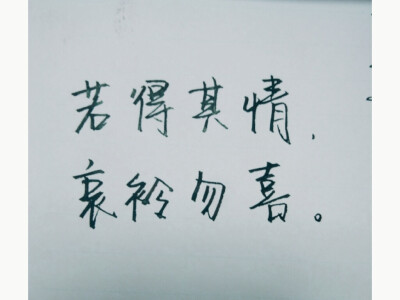 若得其情，
哀衿勿喜。